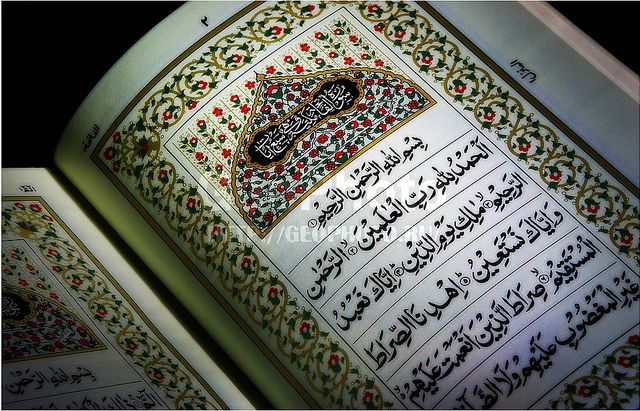 ٢
بِسْمِ اللهِ الرَّحْمٰنِ الرَّحِيْمِ
اَلْحَمْدُ لِلّٰهِ رَبِّ الْعٰلَمِيْنَ الرَّحْمٰنِ
الرَّحِيْمِ مٰلِكِ يَوْمِ الدِّيْنِ اِيَّاكَ نَعْبُدُ
وَاِيَّاكَ نَسْتَعِيْنُ اِهْدِنَا الصِّرَاطَ
الْمُسْتَقِيْمَ صِرَاطَ الَّذِيْنَ اَنْعَمْتَ عَلَيْهِمْ
غَيْرِ الْمَغْضُوْبِ عَلَيْهِمْ وَلَا
بِسْمِ اللهِ الرَّحْمٰنِ
HTTP://GEOPHOTO.RU/